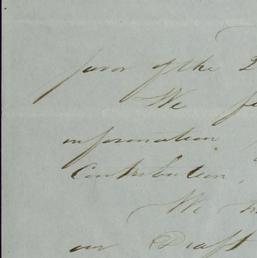 favor of the 2
We fe
information
Contribution,
We h
our Draft